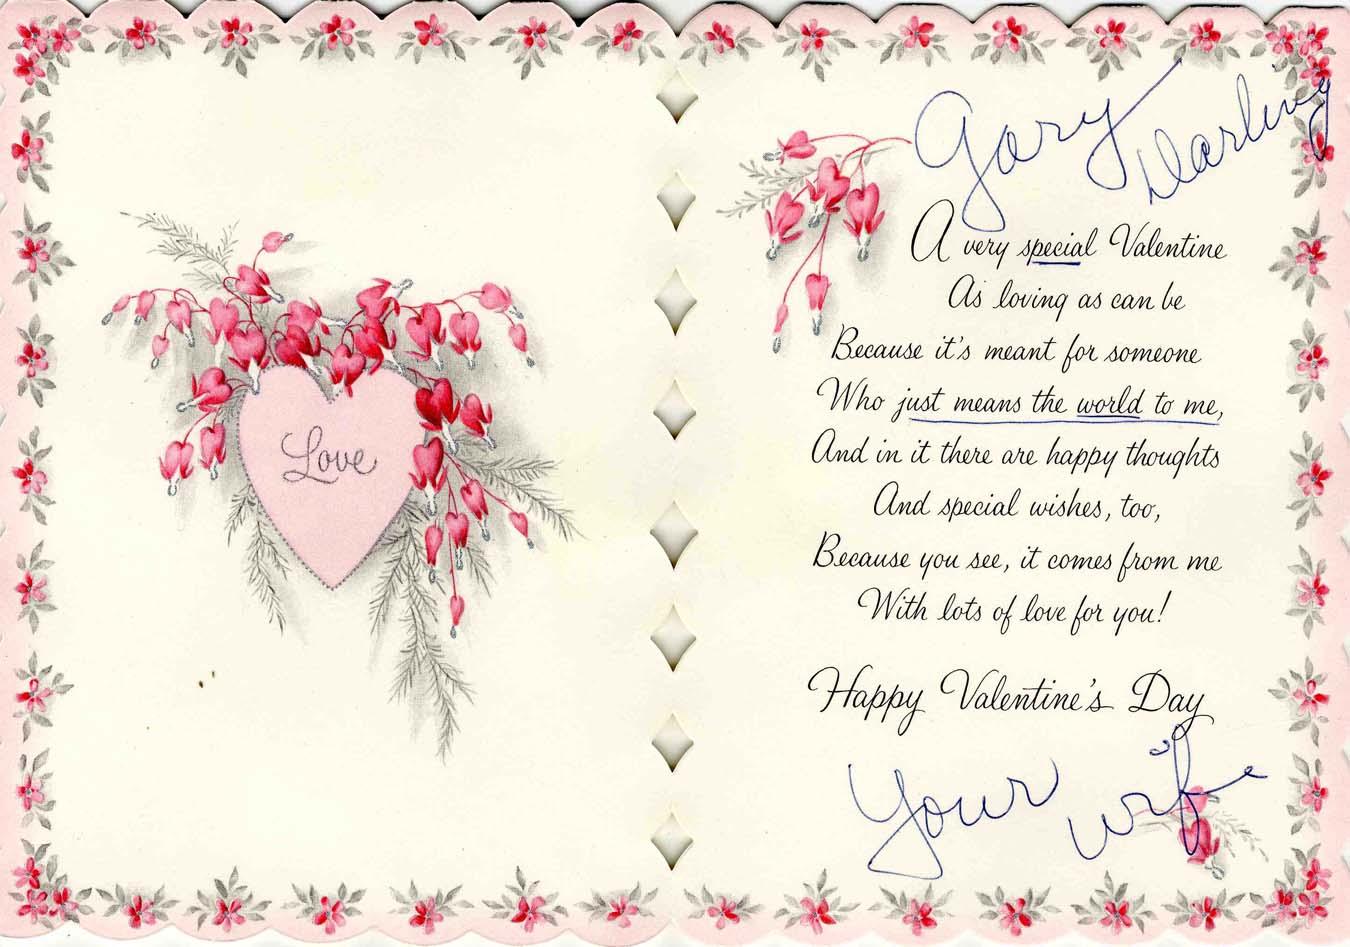 Love
Gary
Darling
A very special Valentine
As loving as can be
Because it's meant for someone
Who just means the world to me,
And in it there are happy thoughts
And special wishes, too,
Because you see, it comes from me
With lots of love for you!
Happy Valentine's Day
Your wife